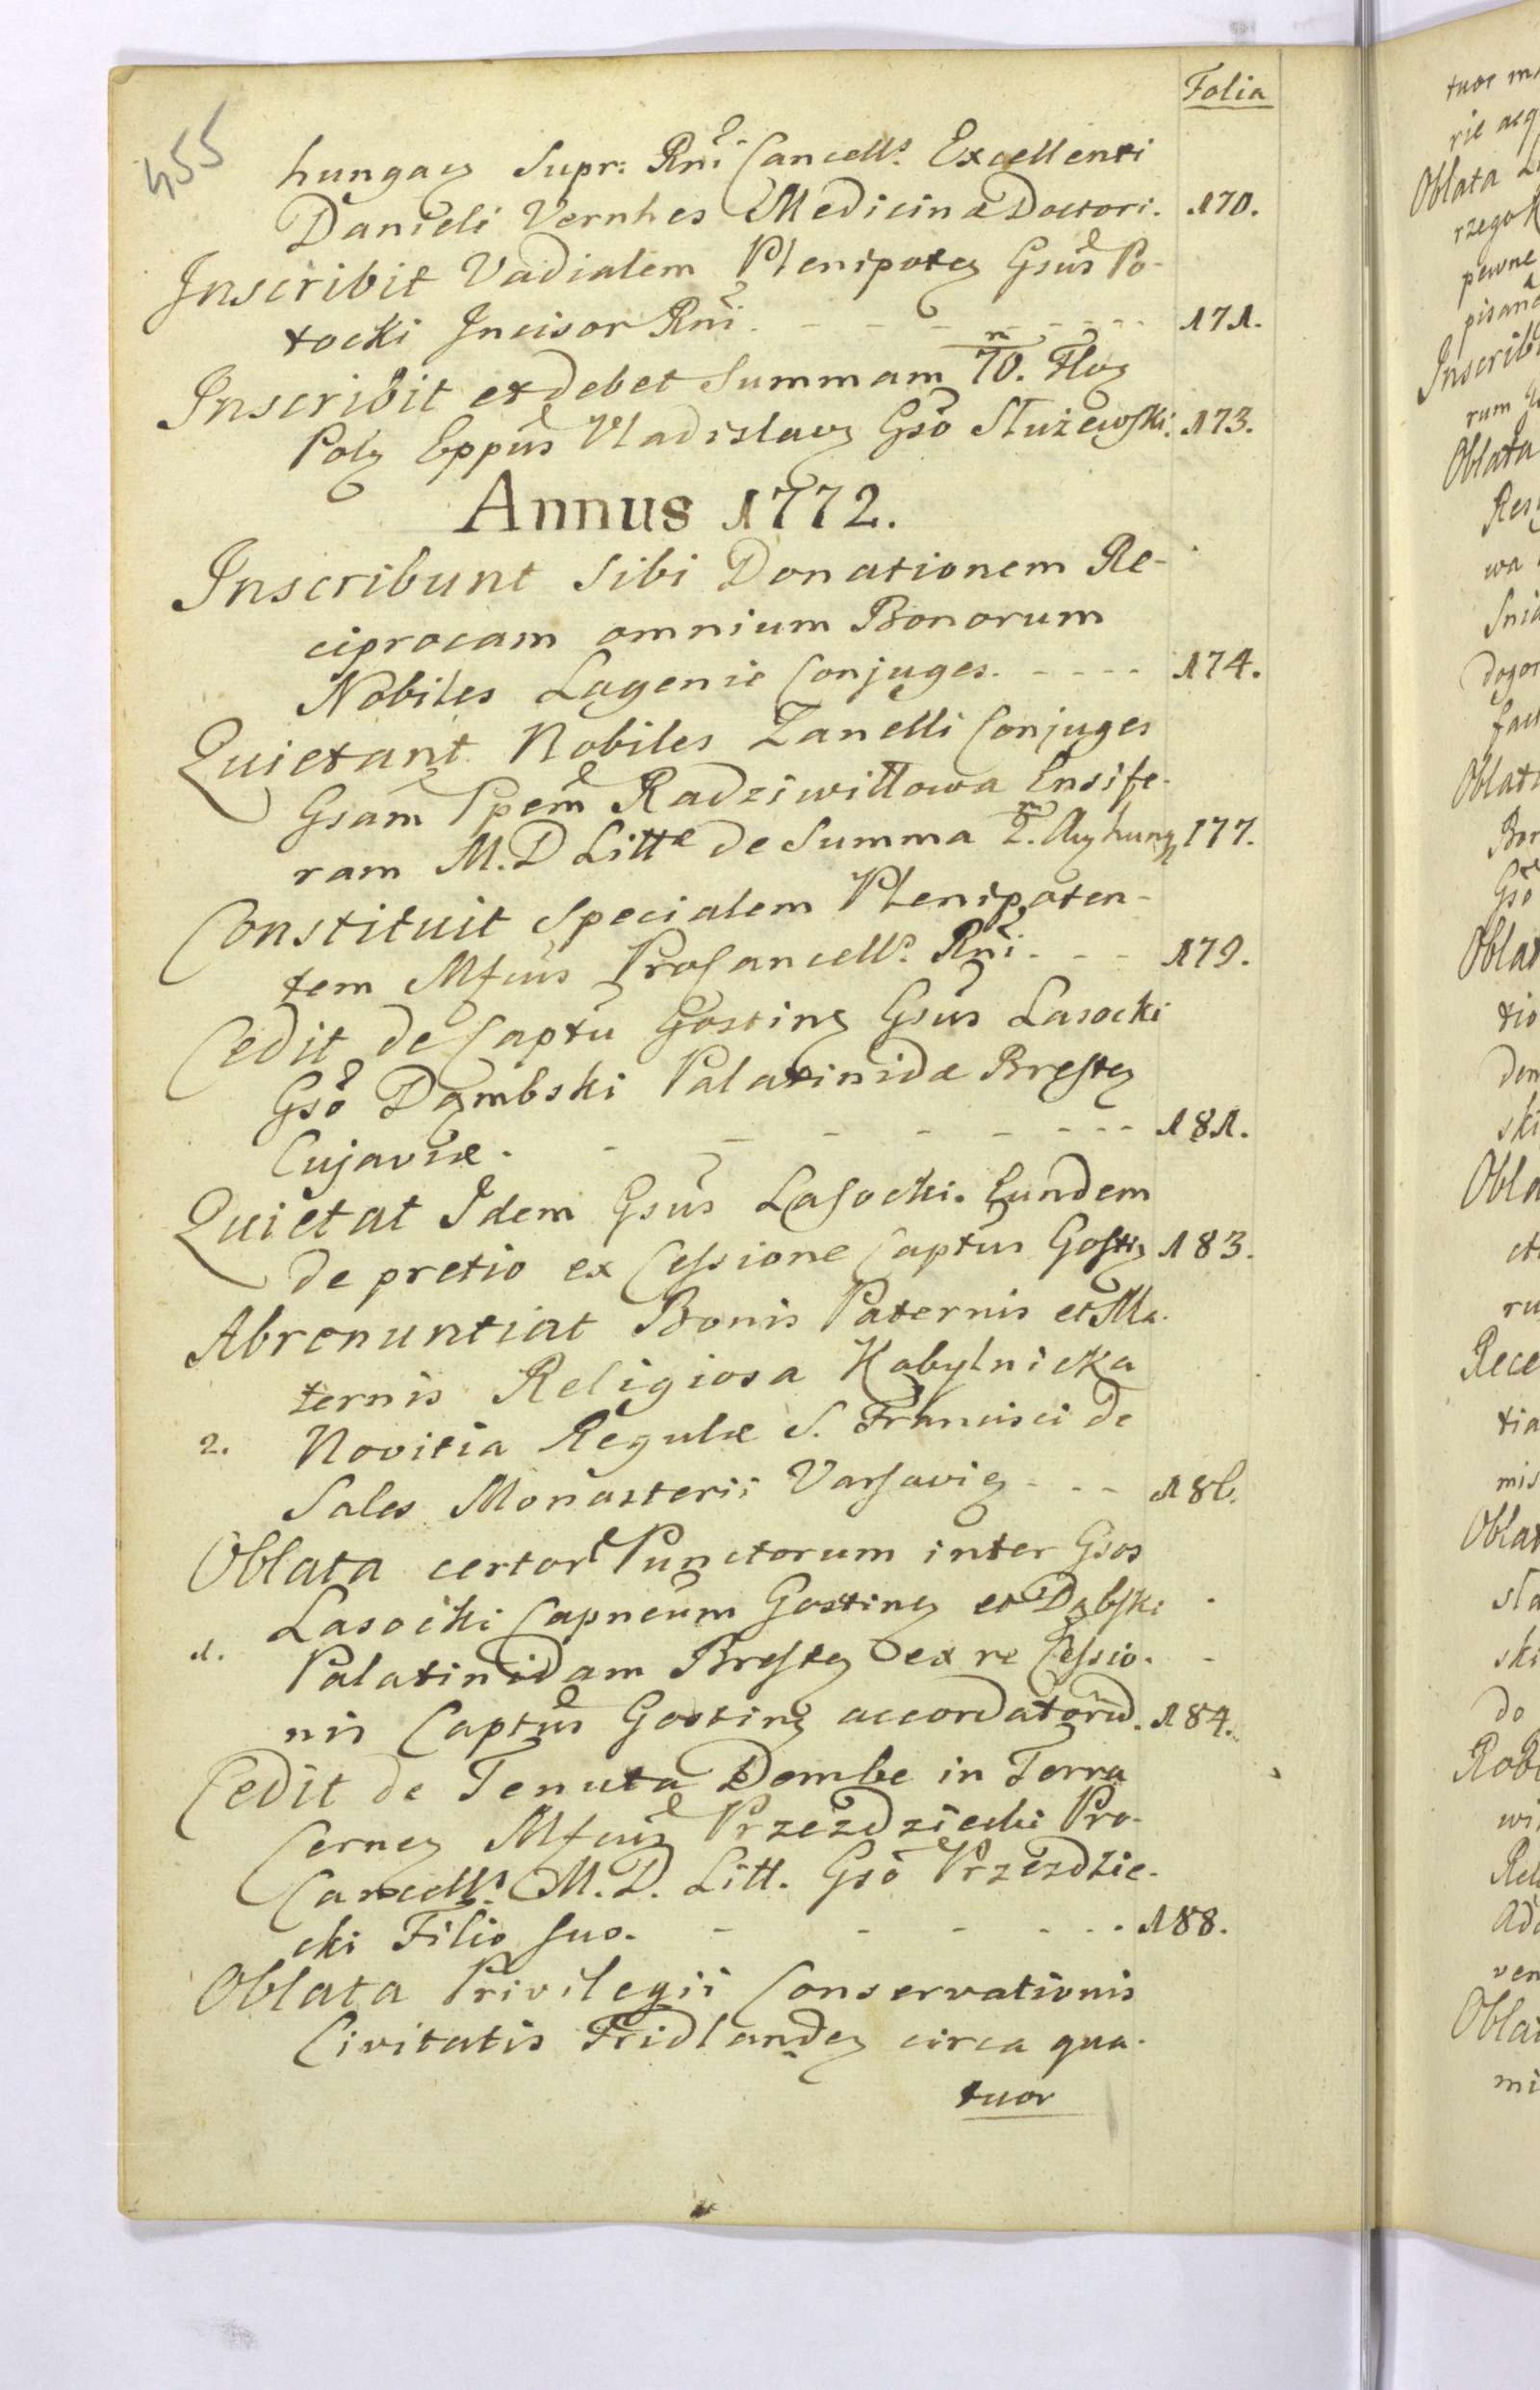 Folia
455
hungaꝝ Supr: Rni Cancells. Excellenti
Danieli Vernhes Medicinæ Doctori. 170.
Inscribit Vadialem Plenipoteꝝ Gsus Po-
tocki Incisor Rni. 171.
Inscribit et debet Summam 70/m. Floꝝ
Polꝝ Eppus Vladislaviꝝ Gso Służewski. 173.
Annus 1772.
Inscribunt Sibi Donationem Re-
ciprocam omnium Bonorum
Nobiles Lagenie Conjuges. 174.
Quietant Nobiles Zanelli Conjuges
Gsam Ppem Radziwiłłowa Ensife-
ram M.D Litt de Summa 2/m. Auꝝ hung 177.
Constituit Specialem Plenipoten-
tem Mfcus ProCancells. Rni. 179.
Cedit de Captu Gostinꝝ Gsus Lasocki
Gso Dꝝmbski Palatinidæ Brestꝝ
Cujaviæ. 181.
Quietat Idem Gsus Lasocki. Eundem
de pretio ex Cessione Captus Gostꝝ 183.
Abrenuntiat Bonis Paternis et Ma-
ternis Religiosa Kobylnicka
2. Novitia Regulæ S. Francisci de
Sales Monasterii Varsaviꝝ 186.
Oblata certor Punctorum inter Gsos
Lasocki Capneum Gostinꝝ et Dąbski
1. Palatinidam Brestꝝ ex re Cessio-
nis Captus Gostinꝝ accordatorũ. 184.
Cedit de Tenuta Dembe in Terra
Cerneꝝ Mfcus Przezdziecki Pro-
Cancells. M.D. Litt. Gso Przezdzie-
cki Filio suo. 188.
Oblata Privilegii Conservationis
Civitatis Fridlandeꝝ circa qua-
tuor
Oblata
rzego
pewne
Inscrib
rum
Oblata
wa
Oblat
Gso
Oblat
tio
den
ski
Obla
Rece
tia
mis
Oblat
ski
do
Oblat
mi